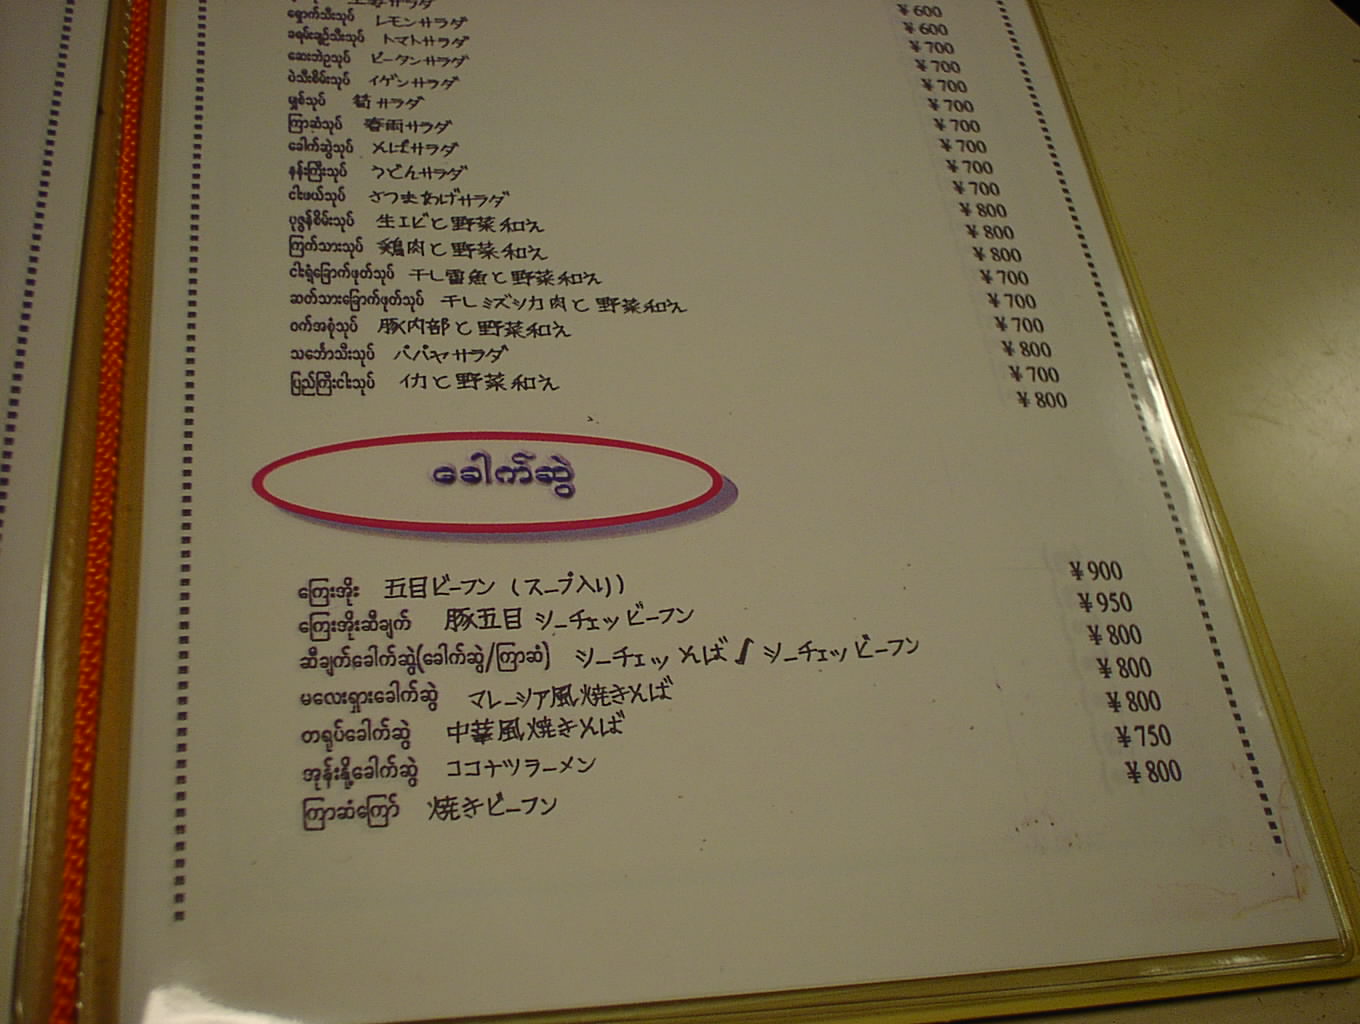 サラダ ¥600
ရှောက်သီးသုပ် レモンサラダ ¥600
ခရမ်းချဉ်သီးသုပ် トマトサラダ ¥700
ဆေးဘဲဥသုပ် ピータンサラダ ¥700
ပဲသီးစိမ်းသုပ် イゲンサラダ ¥700
မျှစ်သုပ် 筍サラダ ¥700
ကြာဆံသုပ် 春雨サラダ ¥700
ခေါက်ဆွဲသုပ် そばサラダ ¥700
နန်းကြီးသုပ် うどんサラダ ¥700
ငါးဖယ်သုပ် さつまあげサラダ ¥700
ပုဇွန်စိမ်းသုပ် 生エビと野菜和え ¥800
ကြက်သားသုပ် 鶏肉と野菜和え ¥800
ငါးရံ့ခြောက်ဖုတ်သုပ် 干し雷魚と野菜和え ¥800
ဆတ်သားခြောက်ဖုတ်သုပ် 干しミズシカ肉と野菜和え ¥700
ဝက်အစုံသုပ် 豚内部と野菜和え ¥700
သင်္ဘောသီးသုပ် パパヤサラダ ¥700
ပြည်ကြီးငါးသုပ် イカと野菜和え ¥800
¥700
¥800
ခေါက်ဆွဲ
ကြေးအိုး 五目ビーフン（スープ入り） ¥900
ကြေးအိုးဆီချက် 豚五目シーチェッビーフン ¥950
ဆီချက်ခေါက်ဆွဲ(ခေါက်ဆွဲ/ကြာဆံ) シーチェッそば / シーチェッビーフン ¥800
မလေးရှားခေါက်ဆွဲ マレーシア風焼きそば ¥800
တရုပ်ခေါက်ဆွဲ 中華風焼きそば ¥800
အုန်းနို့ခေါက်ဆွဲ ココナツラーメン ¥750
ကြာဆံကြော် 焼きビーフン ¥800